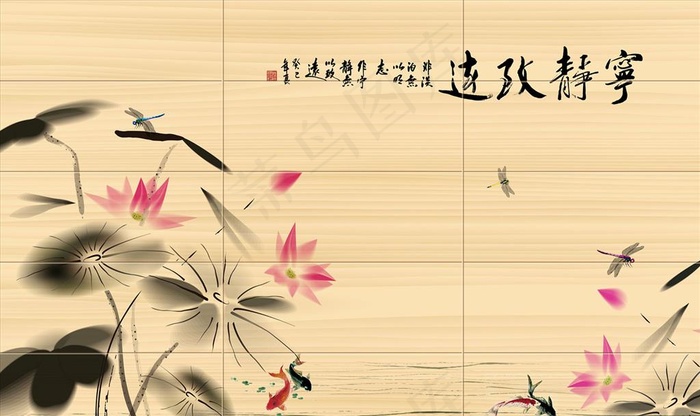 寧靜致遠
非淡
泊無
以明
志
非寧
靜無
以致
遠
癸巳
年夏
菜鸟图库